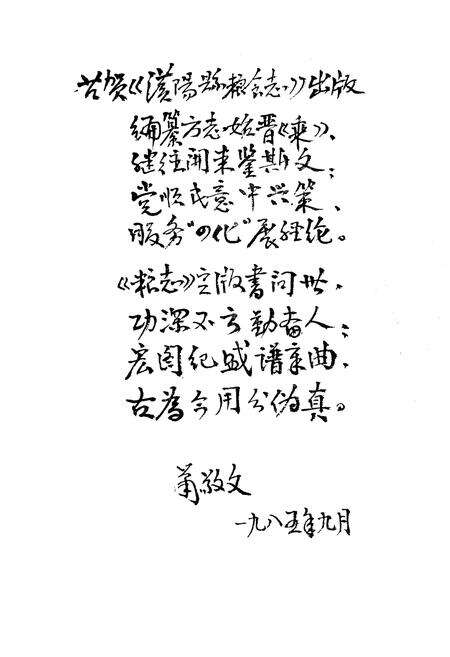 敬贺《汉阳县粮食志》出版
编纂方志始晋《乘》、
继往开来鉴斯文；
党顺民意中兴策、
服务"四化"展经纶。
《粮志》定版书问世，
功深不言勤奋人；
宏图纪盛谱新曲，
古為今用分伪真。
萧敬文
一九八五年九月